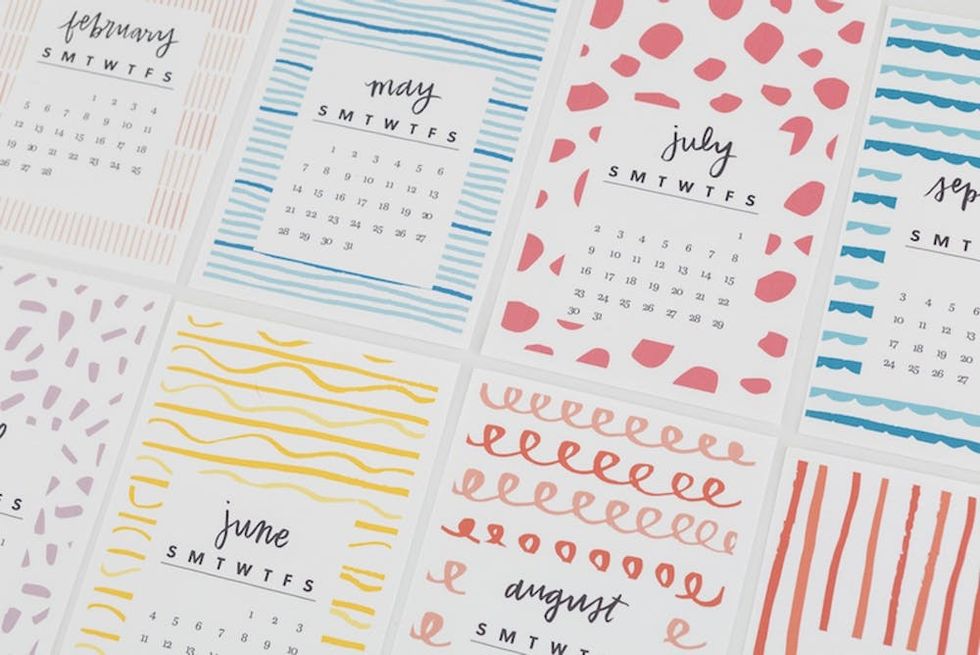 february
S M T W T F S
1 2 3 4
5 6 7 8 9 10 11
12 13 14 15 16 17 18
19 20 21 22 23 24 25
26 27 28
may
S M T W T F S
1 2 3 4 5 6
7 8 9 10 11 12 13
14 15 16 17 18 19 20
21 22 23 24 25 26 27
28 29 30 31
july
S M T W T F S
1
2 3 4 5 6 7 8
9 10 11 12 13 14 15
16 17 18 19 20 21 22
23 24 25 26 27 28 29
30 31
sep
S M T
3 4 5 6
10 11 12 13
17 18 19 20
24 25 26 27
S
1
june
S M T W T F S
1 2 3
4 5 6 7 8 9 10
11 12 13
august
S M T W